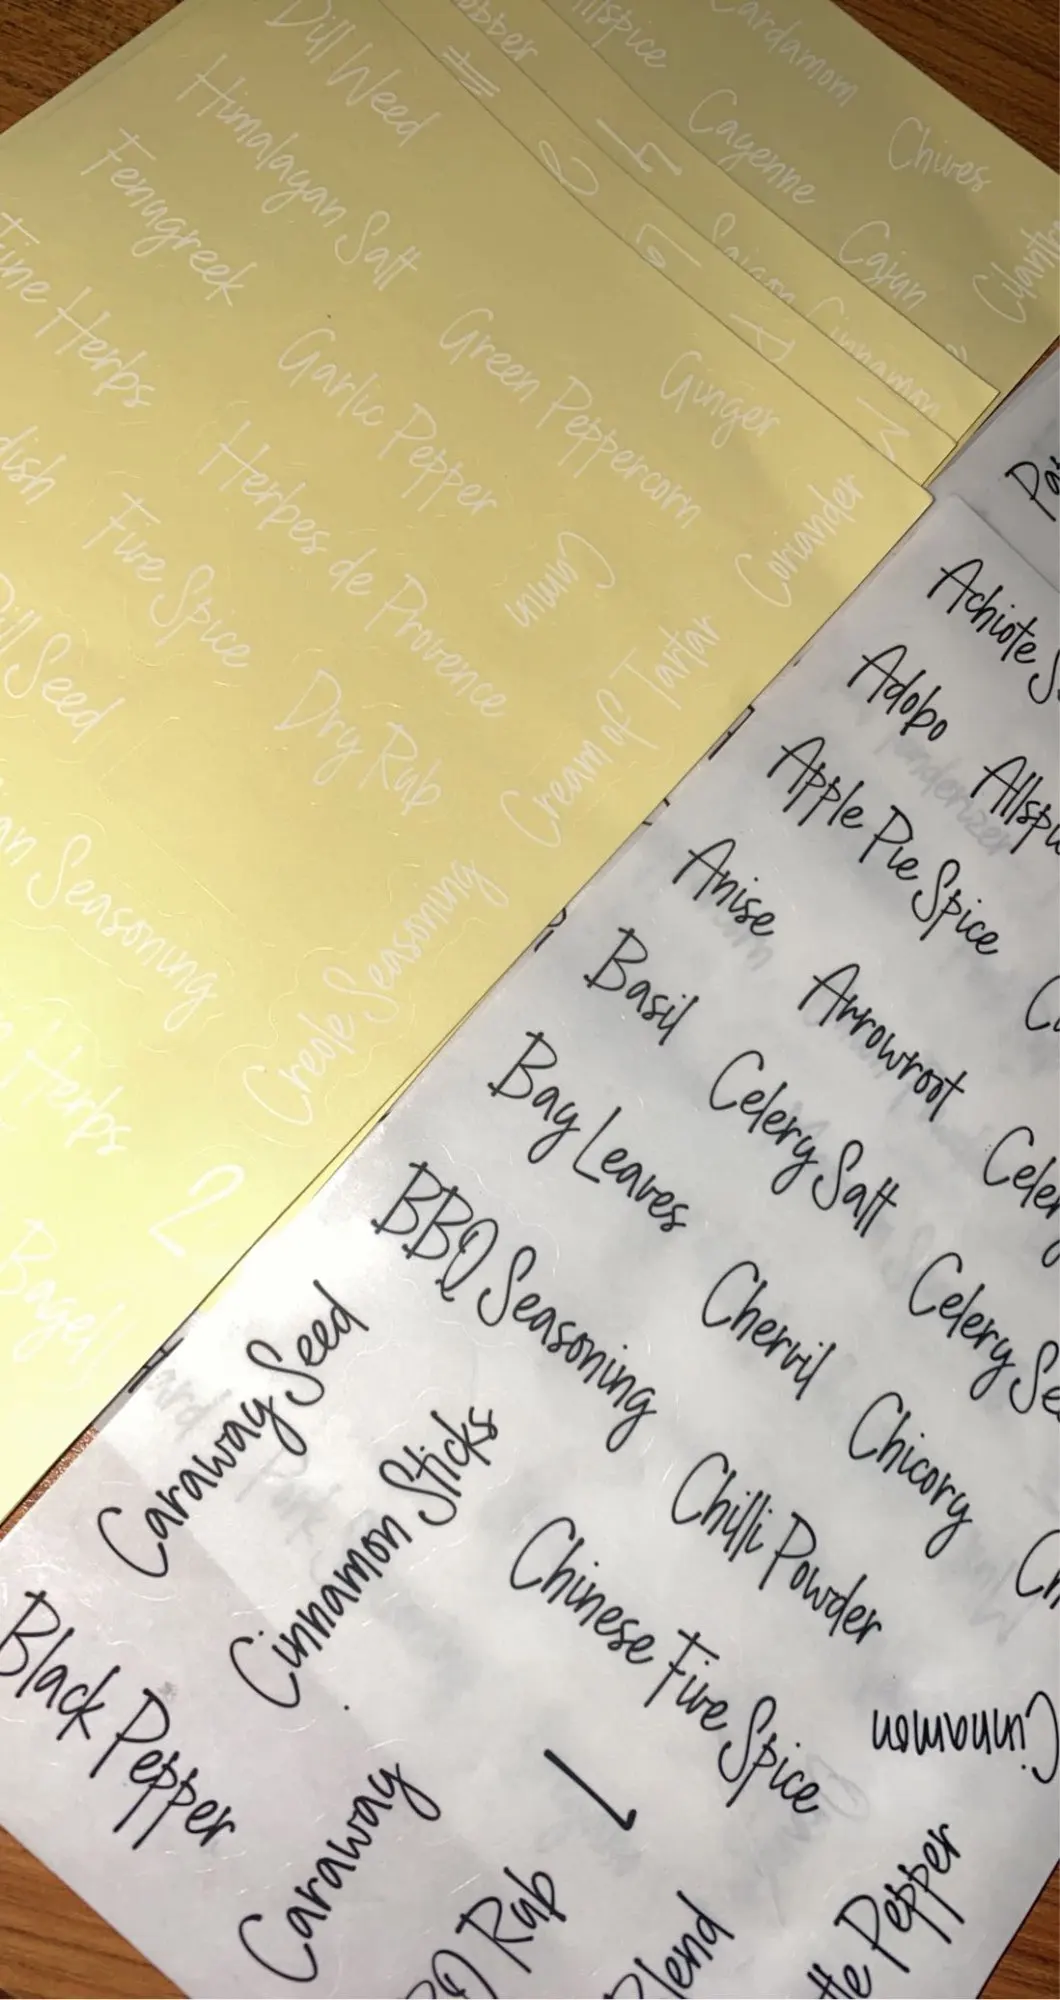 Dill Weed
Himalayan Salt
Fenugreek
Herbs
Garlic Pepper
Green Peppercorn
Ginger
Coriander
Five Spice
Herbes de Provence
Cumin
Dill Seed
Dry Rub
Cream of Tartar
Seasoning
Creole Seasoning
Herbs
2
Bagel
Allspice
Cardamom
Cayenne
Chives
Cajun
Saigon Cinnamon
Achiote
Adobo
Apple Pie Spice
Anise
Arrowroot
Basil
Celery Salt
Bay Leaves
BBQ Seasoning
Chervil
Celery
Chicory
Caraway Seed
Chilli Powder
Cinnamon Sticks
Chinese Five Spice
Cinnamon
Black Pepper
1
Caraway
Rub
Blend
Pepper